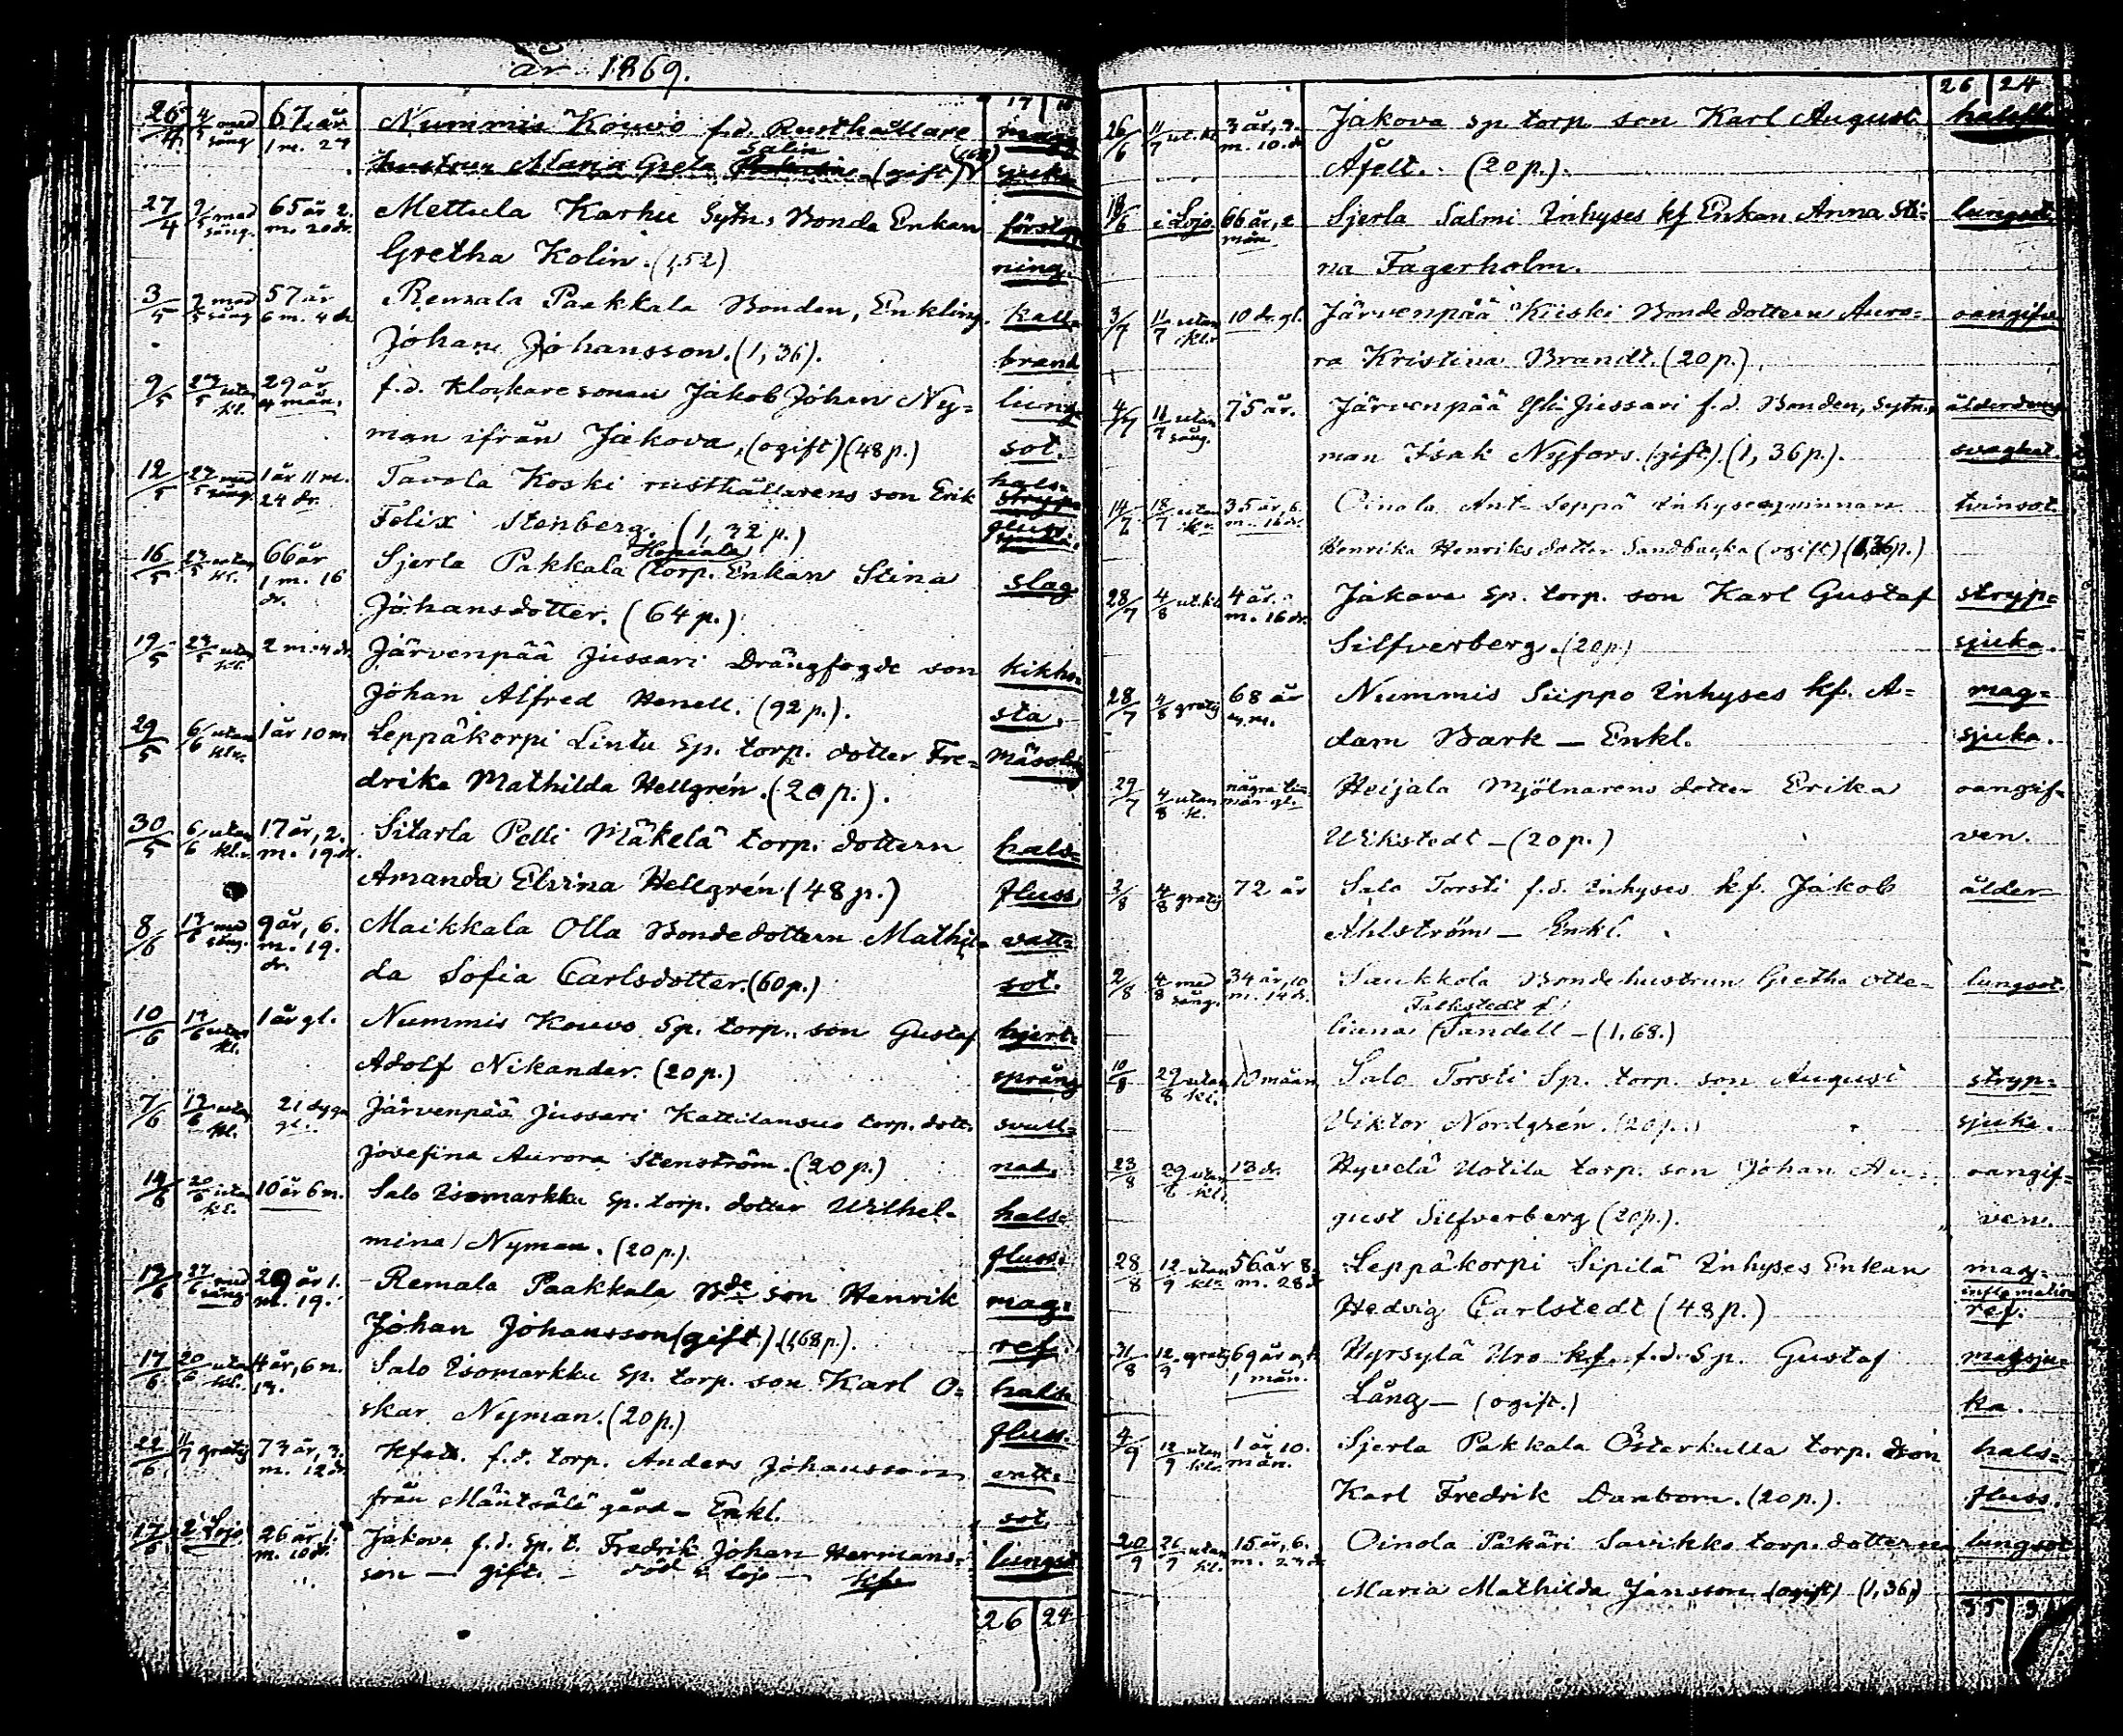 år 1869.
17
26/4 med sång 67 år Nummis Kouvo f.d. Rusthållare mag-
1 m. 27 hustrun Maria Greta Salin (gift) sjuka
27/4 med sång. 65 år 2. Mettula Karhu Sytn. Bonde Enkan förstop
m. 20 dr. Gretha Kolin. (1,52) ning.
3/5 med sång 57 år Remala Paakkala Bonden, Enkling. kall-
6 m. 4 dr Johan Johansson. (1,36). brand
9/5 23/5 utan kl. 29 år f.d. Klockare sonen Jakob Johan Ny=
4 mån. lung-
man ifrån Jakova, (ogift) (48 p.) sot.
12/5 med sång 1 år 11 m. Tavola Koski rusthållarens son Erik hals=
24 dr. Felix Stenberg. (1,32 p.) fluss.
16/5 23/5 utan kl. 66 år Sjerla Pakkala torp. Enkan Stina slag
1 m. 16 dr. Johansdotter. (64 p.)
19/5 23/5 utan kl. 2 m. 4 dr. Järvenpää Jussari Drängfogde son kikho=
Johan Alfred Henell. (92 p.). sta.
29/5 6/6 utan klr. 1 år 10 m Leppäkorpi Lintu Sp. torp. dotter Fre= Mässling
drika Mathilda Hellgrén. (20 p.).
30/5 6/6 utan kl. 17 år, 2. Sitarla Pelli Mäkelä torp. dottern hals=
m. 19 dr. Amanda Elvina Hellgrén (48 p.) fluss,
8/6 13/6 med sång. 9 år, 6. Maikkala Olla Bondedottern Mathil= vatt=
m. 19. dr. da Sofia Carlsdotter. (60 p.) sot.
10/6 13/6 utan kl. 1 år gl. Nummis Kouvo Sp. torp. son Gustaf hjert=
Adolf Nikander. (20 p.) språng
7/6 13/6 utan kl. 21 dygn gl. Järvenpää Jussari Kattilansuo torp. dott. svull=
Josefina Aurora Stenström. (20 p.) nad.
14/6 20/6 utan kl. 10 år 6 m. Salo Isomarkku Sp. torp. dotter Wilhel= hals=
mina Nyman. (20 p.). fluss.
13/6 27/6 med sång 29 år 1. Remala Paakkala Bde son Henrik mag=
m. 19. Johan Johansson (gift.) (1,68 p.). ref.
17/6 20/6 utan kl. 4 år, 6 m. Salo Isomarkku Sp. torp. son Karl O= hals=
skar Nyman. (20 p.) fluss.
22/6 11/7 gratis 73 år, 3. f.d. torp. Anders Johansson vatt=
m. 12 dr. från Mäntsälä gård - Enkl. sot.
17/6 i Lojo 26 år 1. Jakova f.d. Sp. t. Fredrik Johan Hermans= lungsot
m. 10 dr. son - gift. - död i Lojo - kf.
26 24
26 24
26/6 11/7 ut. kl. 3 år, 3. Jakova sp torp son Karl August halsfl.
m. 10. dr Åfelt. (20 p.).
18/6 i Lojo. 66 år, 2 Sjerla Salmi Inhyses kf Enkan Anna Sti= lungsot.
mån na Fagerholm.
3/7 11/7 utan kl. 10 dr gl. Järvenpää Kiiski Bondedottern Auro= oangifv.
ra Kristina Brandt. (20 p.).
4/7 11/7 utan sång. 75 år. Järvenpää Yli Jussari f.d. Bonden, Sytn. ålderdoms
man Isak Nyfors. (gift). (1,36 p.). svaghet.
14/7 18/7 utan kl. 35 år, 6. Oinola Ant-Seppä inhysesqvinnan tvinsot
m. 16 dr. Henrika Henriksdotter Sandbacka (ogift) (1,36 p.)
28/7 4/8 ut. kl. 4 år. Jakova Sp. torp. son Karl Gustaf stryp=
m. 16 dr. Silfverberg. (20 p.) sjuka.
28/7 4/8 gratis 68 år Nummis Seppo Inhyses kf. A= mag=
dam Bark - Enkl. sjuka.
29/7 4/8 utan k. några tim= Heijala Mjölnarens dotter Erika oangif=
mar gl. Wikstedt - (20 p.) ven.
2/8 4/8 gratis 72 år Salo Torsti f.d. Inhyses kf. Jakob ålder=
Ahlström - Enkl.
2/8 4/8 med sång. 34 år, 10 Saukkola Bondehustrun Gretha Otte= lungsot.
m. 14 d. Falkstedt f.
liana Sandell - (1,68.)
10/8 29/8 utan kl. 10 mån Salo Torsti Sp. torp. son August stryp=
Viktor Nordgrén. (20 p.) sjuka.
23/8 29/8 utan kl. 13 dr. Hyvelä Uotila torp. son Johan Au= oangif=
gust Silfverberg (20 p.). ven.
28/8 12/9 utan klr. 56 år 8. Leppäkorpi Sipilä Inhyses Enkan mag-
m. 28 d inflamation
Hedvig Carlstedt (48 p.) ref.
31/8 12/9 gratis 69 år Hyrsylä Uro kf. f.d. Sp. Gustaf magsju=
1 mån. Lång - (ogift.) ka.
4/9 12/9 utan kl. 1 år, 10. Sjerla Pakkala Österkulla torp. son hals=
mån. Karl Fredrik Danbom. (20 p.). fluss.
20/9 26/9 utan kl. 15 år, 6. Oinola Päkäri Savikko torp. dottern lungsot
m. 23 d Maria Mathilda Jansson (ogift) (1,36 p)